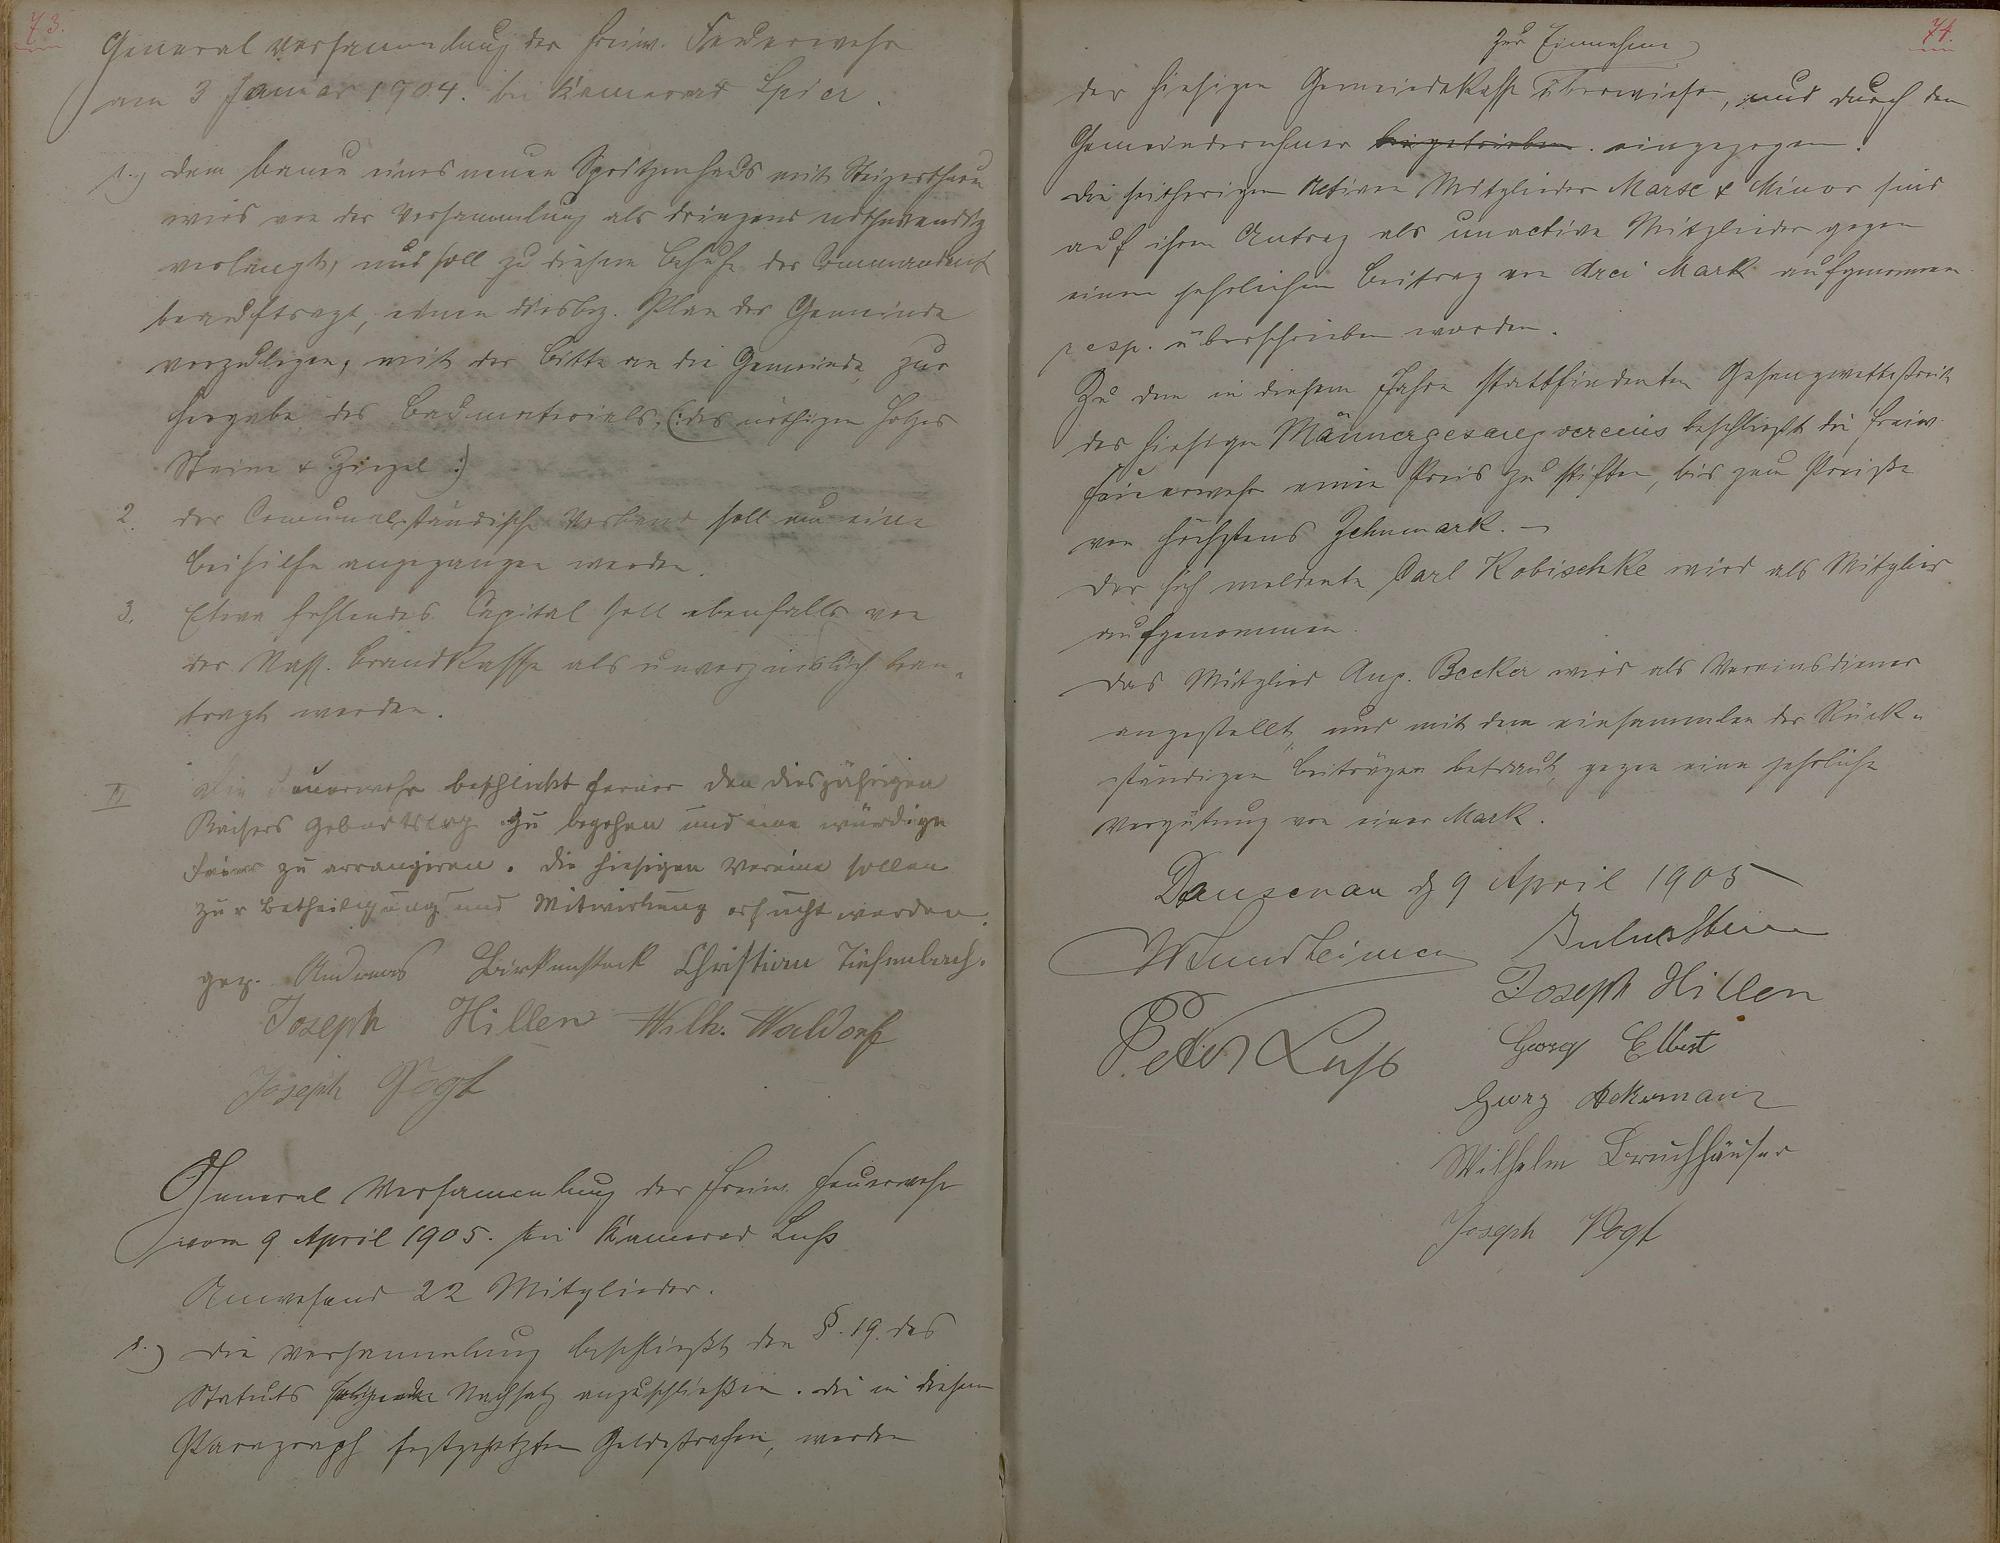 73.
General versammlung der freiw. Feuerwehr
am 3 Januar 1904. bei Kamerad Spier.
1.) Dem bauen eines neuen Spritzenhaus mit Steigerthurm
wird von der Versammlung als dringend nothwendig
verlangt, und soll zu diesem Behufe der Commandant
beauftragt, einen diesbez. Plan der Gemeinde
vorzulegen, mit der Bitte an die Gemeinde, zur
Hergabe des Baumaterials, (: des nöthigen Holzes
Steine & Ziegel :)
2. der Comunalständische Verband soll um eine
Beihilfe angegangen werden.
3. Etwa fehlendes Capital soll ebenfalls von
der Nass. Brandkasse als unverzinslich bean-
tragt werden.
II Die Feuerwehr beschließt ferner den diesjährigen
Kaisers Geburtstag zu begehen und eine würdige
Feier zu arrangiren. Die hiesigen Vereine sollen
zur Betheiligung und Mitwirkung ersucht werden.
gez. Andreas Birkenstock Christian Tiefenbach.
Joseph Hillen Wilh. Waldorf
Joseph Vogt
General Versammlung der freiw. Feuerwehr
vom 9 April 1905. bei Kamerad Luss
Anwesend 22 Mitglieder.
1.) Die Versammlung beschließt den §. 19. des
Statuts folgende Nachsatz anzuschließen. Die in diesem
Paragraph festgesetzten Geldstrafen, werden
74.
zur Einnahme
der hiesigen Gemeindekasse überwiesen, und durch den
Gemeinderechner beigetrieben. eingezogen.
Die seitherigen Activen Mitglieder Marx & Minor sind
auf ihren Antrag als unactive Mitglieder gegen
einen jehrlichen Beitrag von drei Mark aufgenommen
resp. überschrieben worden.
Zu dem in diesem Jahre stattfindenten Gesangwettstreit
des hiesigen Männergesangvereins beschließt die freiw.
Feuerwehr einen Preis zu stiften, bis zum Preiße
von höchstens Zehnmark. —
Der sich meldente Carl Kobischke wird als Mitglied
aufgenommen.
Das Mitglied Aug. Becker wird als Vereinsdiener
angestellt, und mit dem einsammlen der Rück-
ständigen Beiträgen betraut, gegen eine jehrliche
Vergütung von einer Mark.
Dausenau d 9 April 1905
Julius Stein
Joseph Hillen
Peter Luss
Georg Elbert
Georg Ackermann
Wilhelm Bruchhäuser
Joseph Vogt